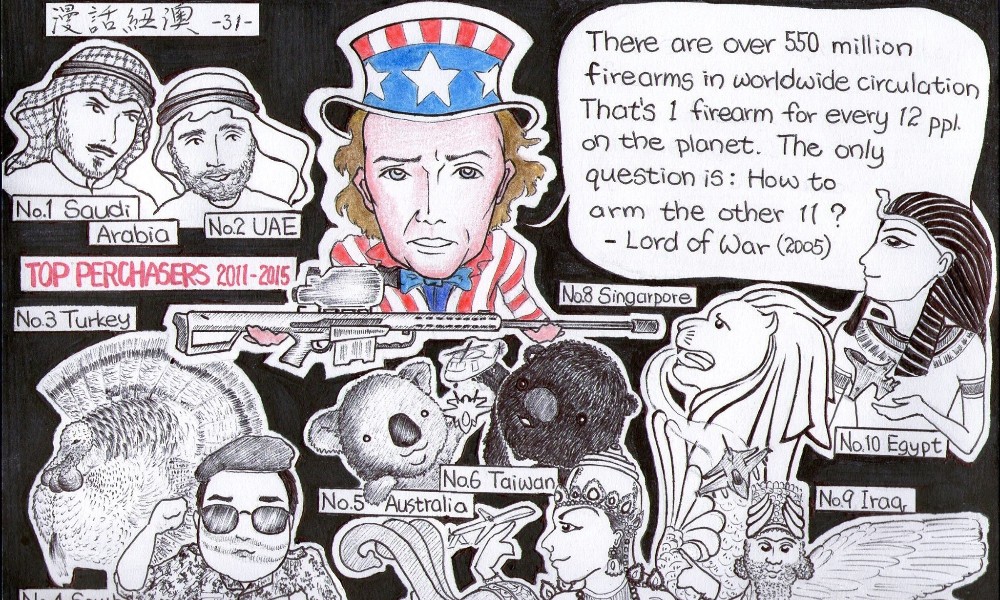 漫話紐澳 -31-
There are over 550 million
firearms in worldwide circulation
That's 1 firearm for every 12 ppl.
on the planet. The only
question is: How to
arm the other 11 ?
- Lord of War (2005)
No.1 Saudi
Arabia
No.2 UAE
TOP PERCHASERS 2011-2015
No.3 Turkey
No.8 Singarpore
No.10 Egypt
No.6 Taiwan
No.5 Australia
No.9 Iraq